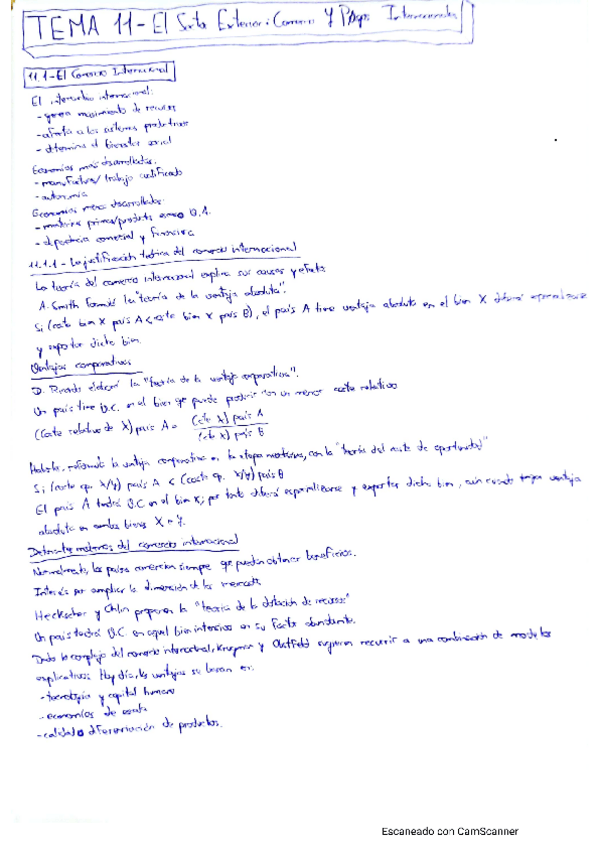 TEMA 11 - El Sector Exterior: Comercio Y Pagos Internacionales
11.1 - El Comercio Internacional
El intercambio internacional:
- genera movimiento de recursos
- afecta a los sistemas productivos
- determina el bienestar social
Economías más desarrolladas:
- manufacturas/trabajo cualificado
- autonomía
Economías menos desarrolladas:
- materias primas/productos
- dependencia comercial y financiera
11.1.1 - La justificación teórica del comercio internacional
La teoría del comercio internacional explica sus causas y efectos
A. Smith formuló la "teoría de la ventaja absoluta".
Si (coste bien X país A < coste bien X país B), el país A tiene ventaja absoluta en el bien X deberá especializarse
y exportar dicho bien.
Ventajas comparativas
D. Ricardo elaboró la "teoría de la ventaja comparativa".
Un país tiene V.C. en el bien que puede producir con un menor coste relativo
(Coste relativo de X) país A = (cte X) país A
(cte X) país B
Haberler, reformuló la ventaja comparativa en la etapa moderna, con la "teoría del coste de oportunidad"
Si (coste op. X/Y) país A < (coste op. X/Y) país B
El país A tendrá V.C en el bien X; por tanto deberá especializarse y exportar dicho bien, aún cuando tenga ventaja
absoluta en ambos bienes X e Y.
del comercio internacional
Normalmente, los países comercian siempre que puedan obtener beneficios.
Interés por ampliar la dimensión de los mercados
Heckscher y Ohlin proponen la "teoría de la dotación de recursos"
Un país tendrá V.C. en aquel bien intensivo en su factor abundante.
Dada la complejidad del comercio internacional, Krugman y Obstfeld sugieren recurrir a una combinación de modelos
explicativos. Hoy día, las ventajas se basan en:
- tecnología y capital humano
- economías de escala
- calidad o diferenciación de productos.
Escaneado con CamScanner